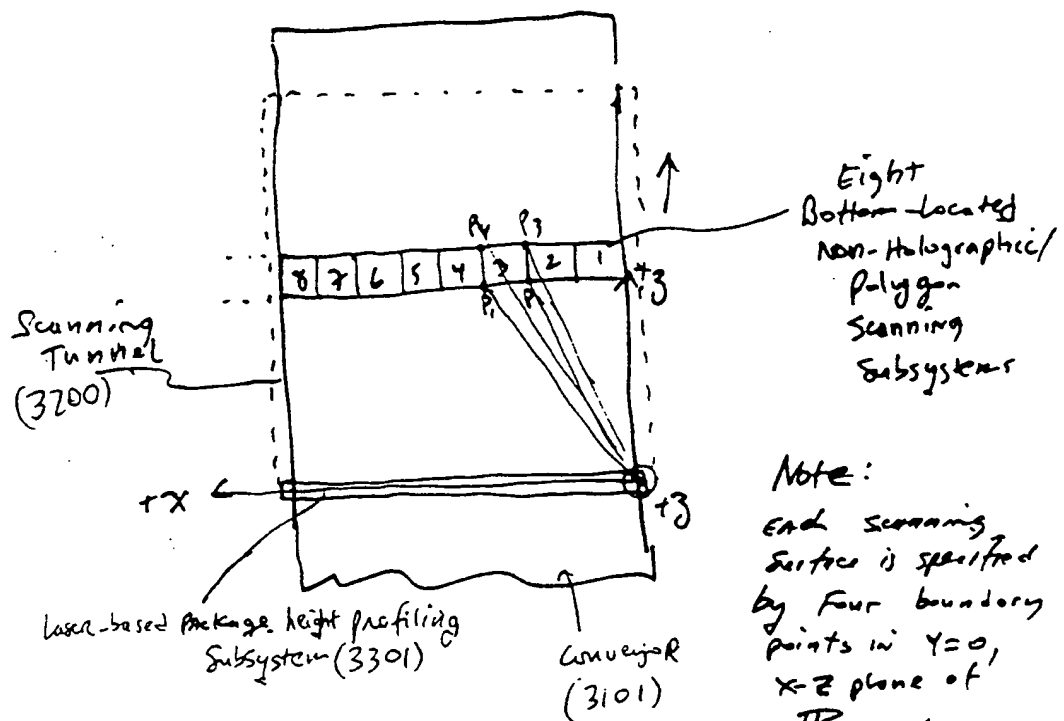 Eight
Bottom-Located
Non-Holographic/
Polygon
Scanning
Subsystems
P4 P3
8 7 6 5 4 3 2 1
+z
P1 P2
Scanning
Tunnel
(3200)
+x
+z
Note:
Each scanning
surface is specified
by four boundary
points in Y=0,
X-Z plane of
Laser-based Package height profiling
Subsystem (3301)
Conveyor
(3101)